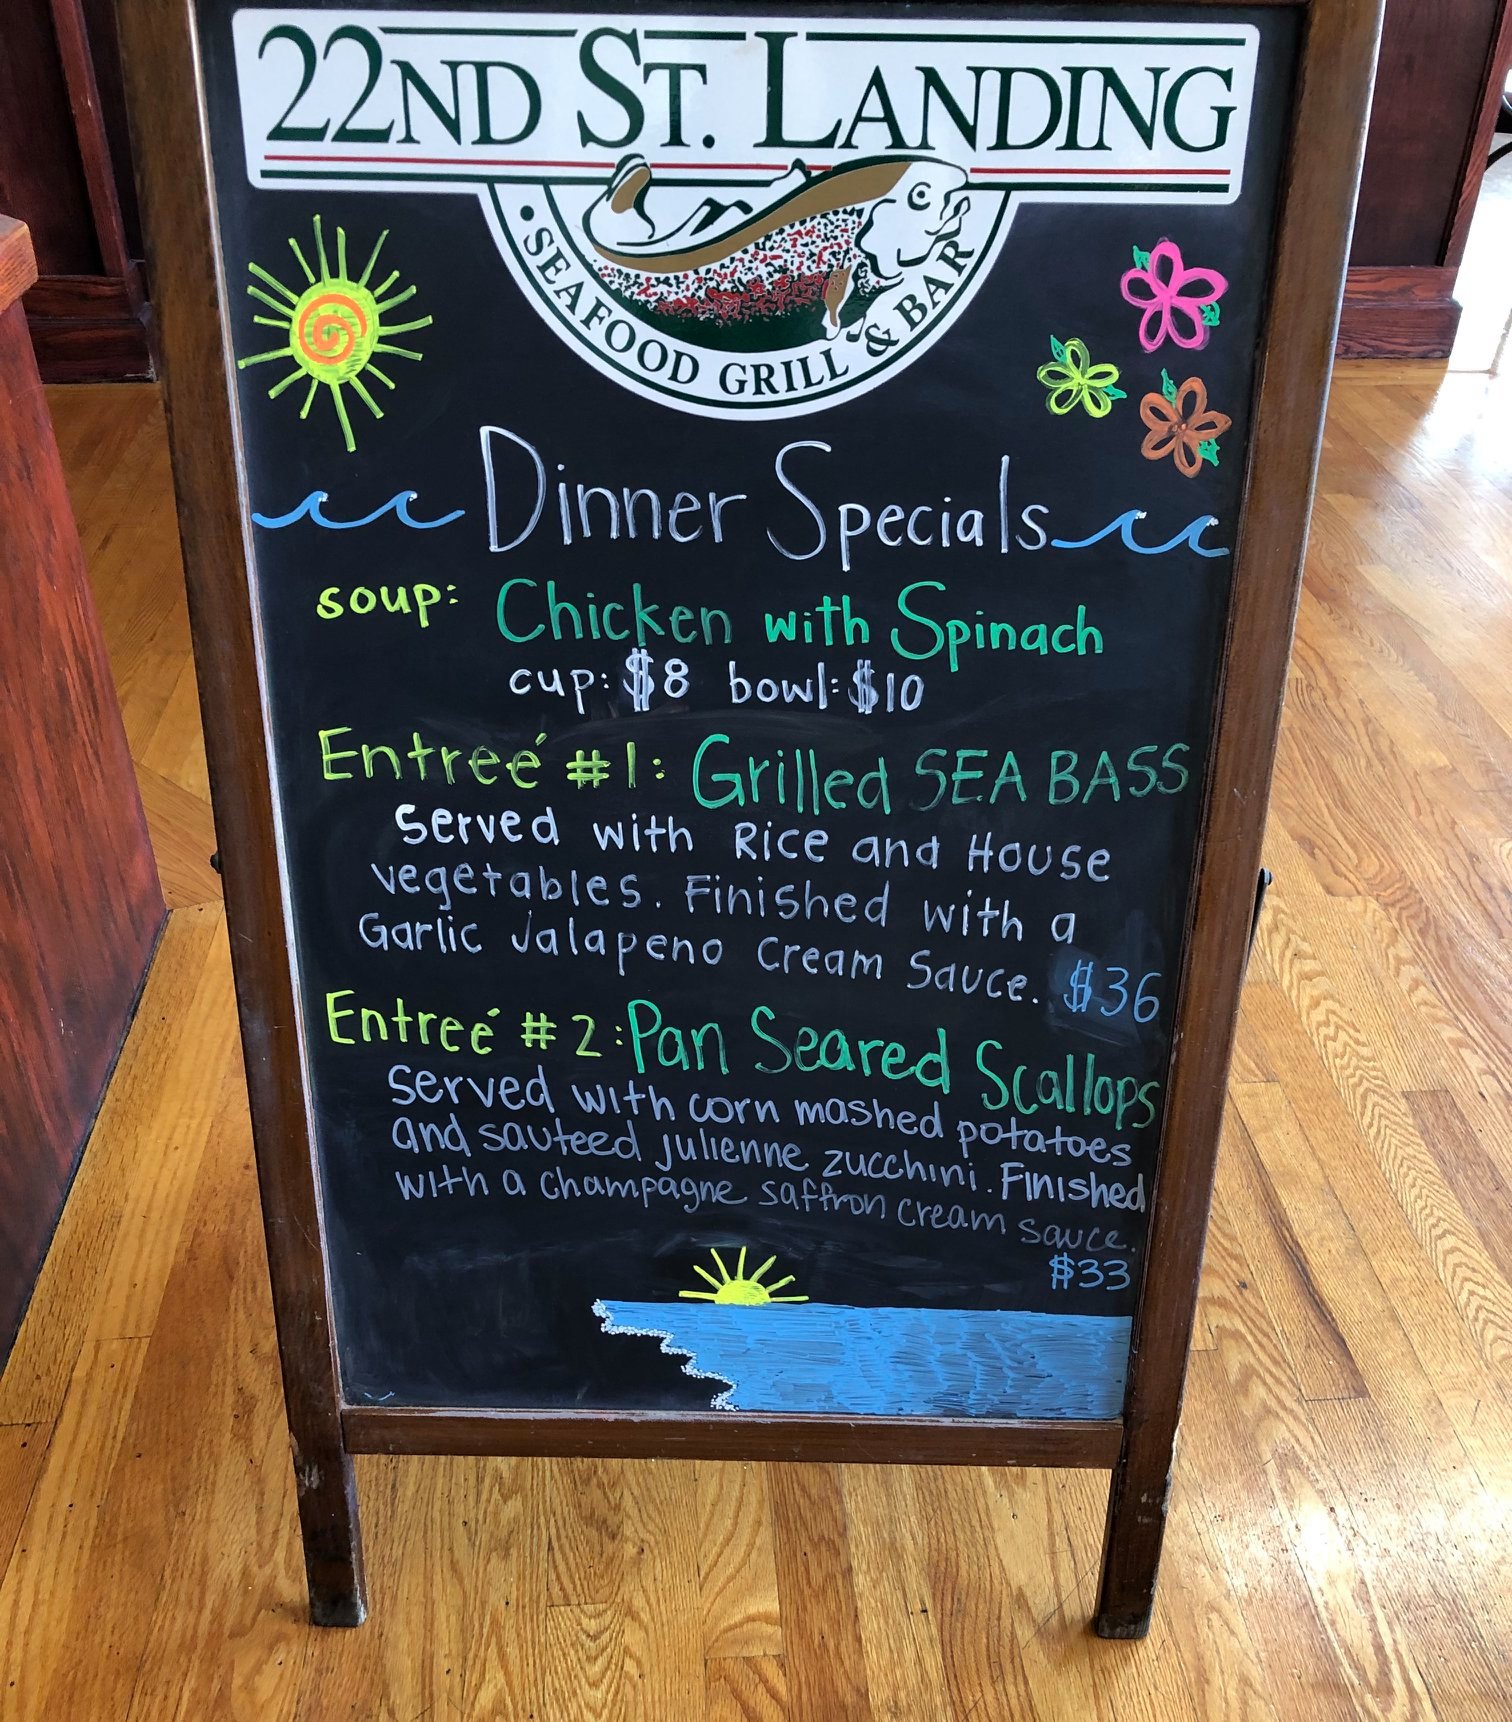 22ND ST. LANDING
• SEAFOOD GRILL & BAR
Dinner Specials
soup: Chicken with Spinach
cup: $8 bowl: $10
Entreé #1: Grilled SEA BASS
Served with Rice and House
vegetables. Finished with a
Garlic Jalapeno Cream Sauce. $36
Entreé #2: Pan Seared Scallops
Served with corn mashed potatoes
and sauteed julienne zucchini. Finished
with a champagne saffron cream sauce.
$33